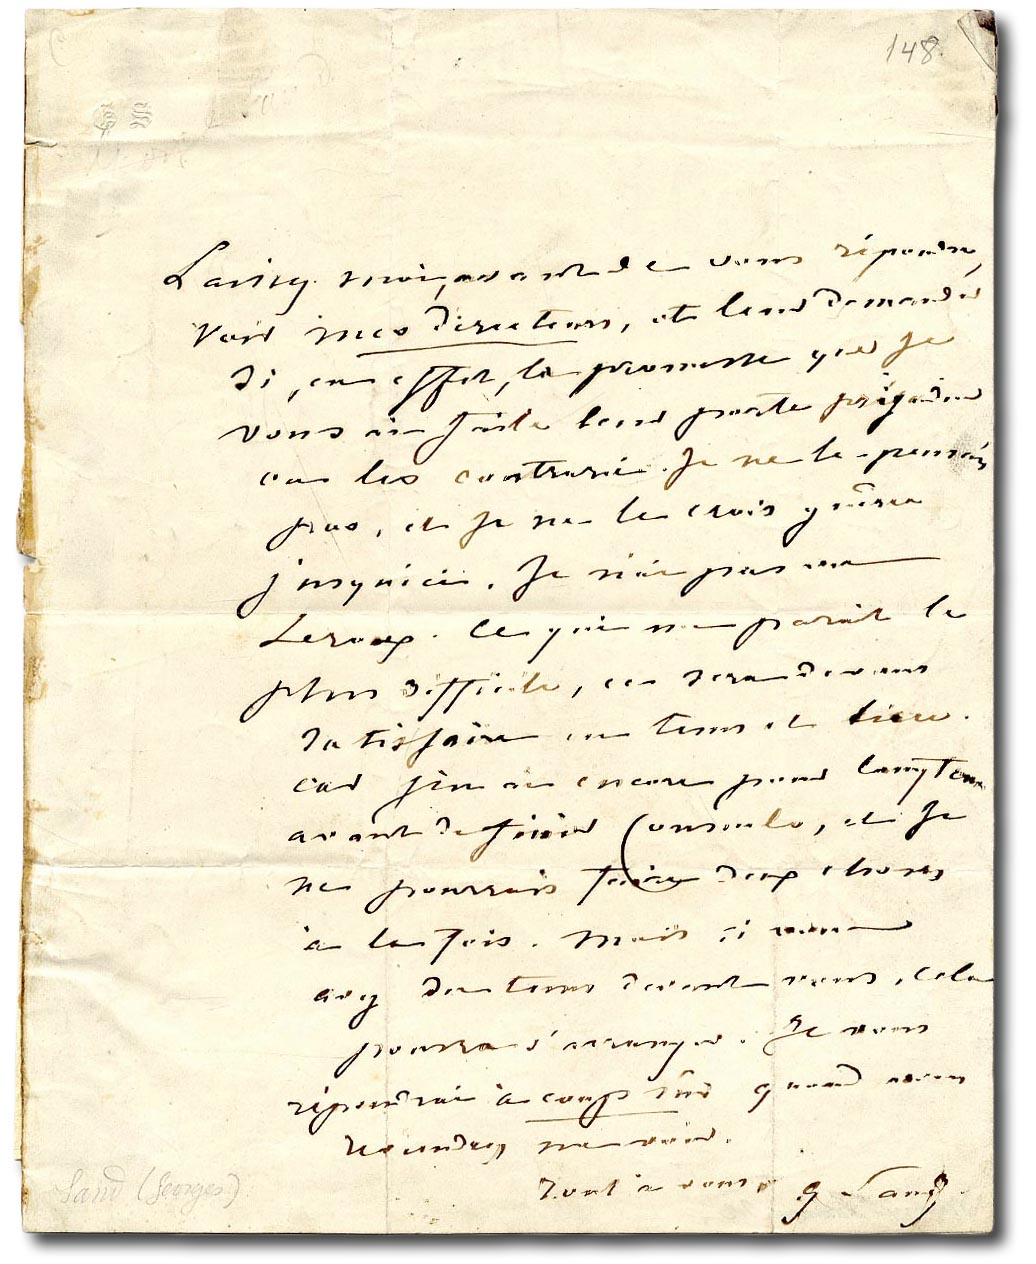 148.
Laissez moi, avant de vous répondre,
voir mes directeurs, et leur demander
si, en effet, la promesse que je
vous ai faite leur porte préjudice
ou les contrarie. Je ne le pensais
pas, et je ne le crois guères
jusqu'ici. Je n'ai pas vu
Leroux. Ce qui me parait le
plus difficile, ce sera de vous
satisfaire en tems et lieu.
car j'en ai encore pour longtems
avant de finir Consuelo, et je
ne pourrais faire deux choses
à la fois. Mais si vous
avez du tems devant vous, cela
pourra s'arranger. Je vous
répondrai à coup sûr quand vous
viendrez me voir.
Tout à vous
G Sand.
Sand (Georges)